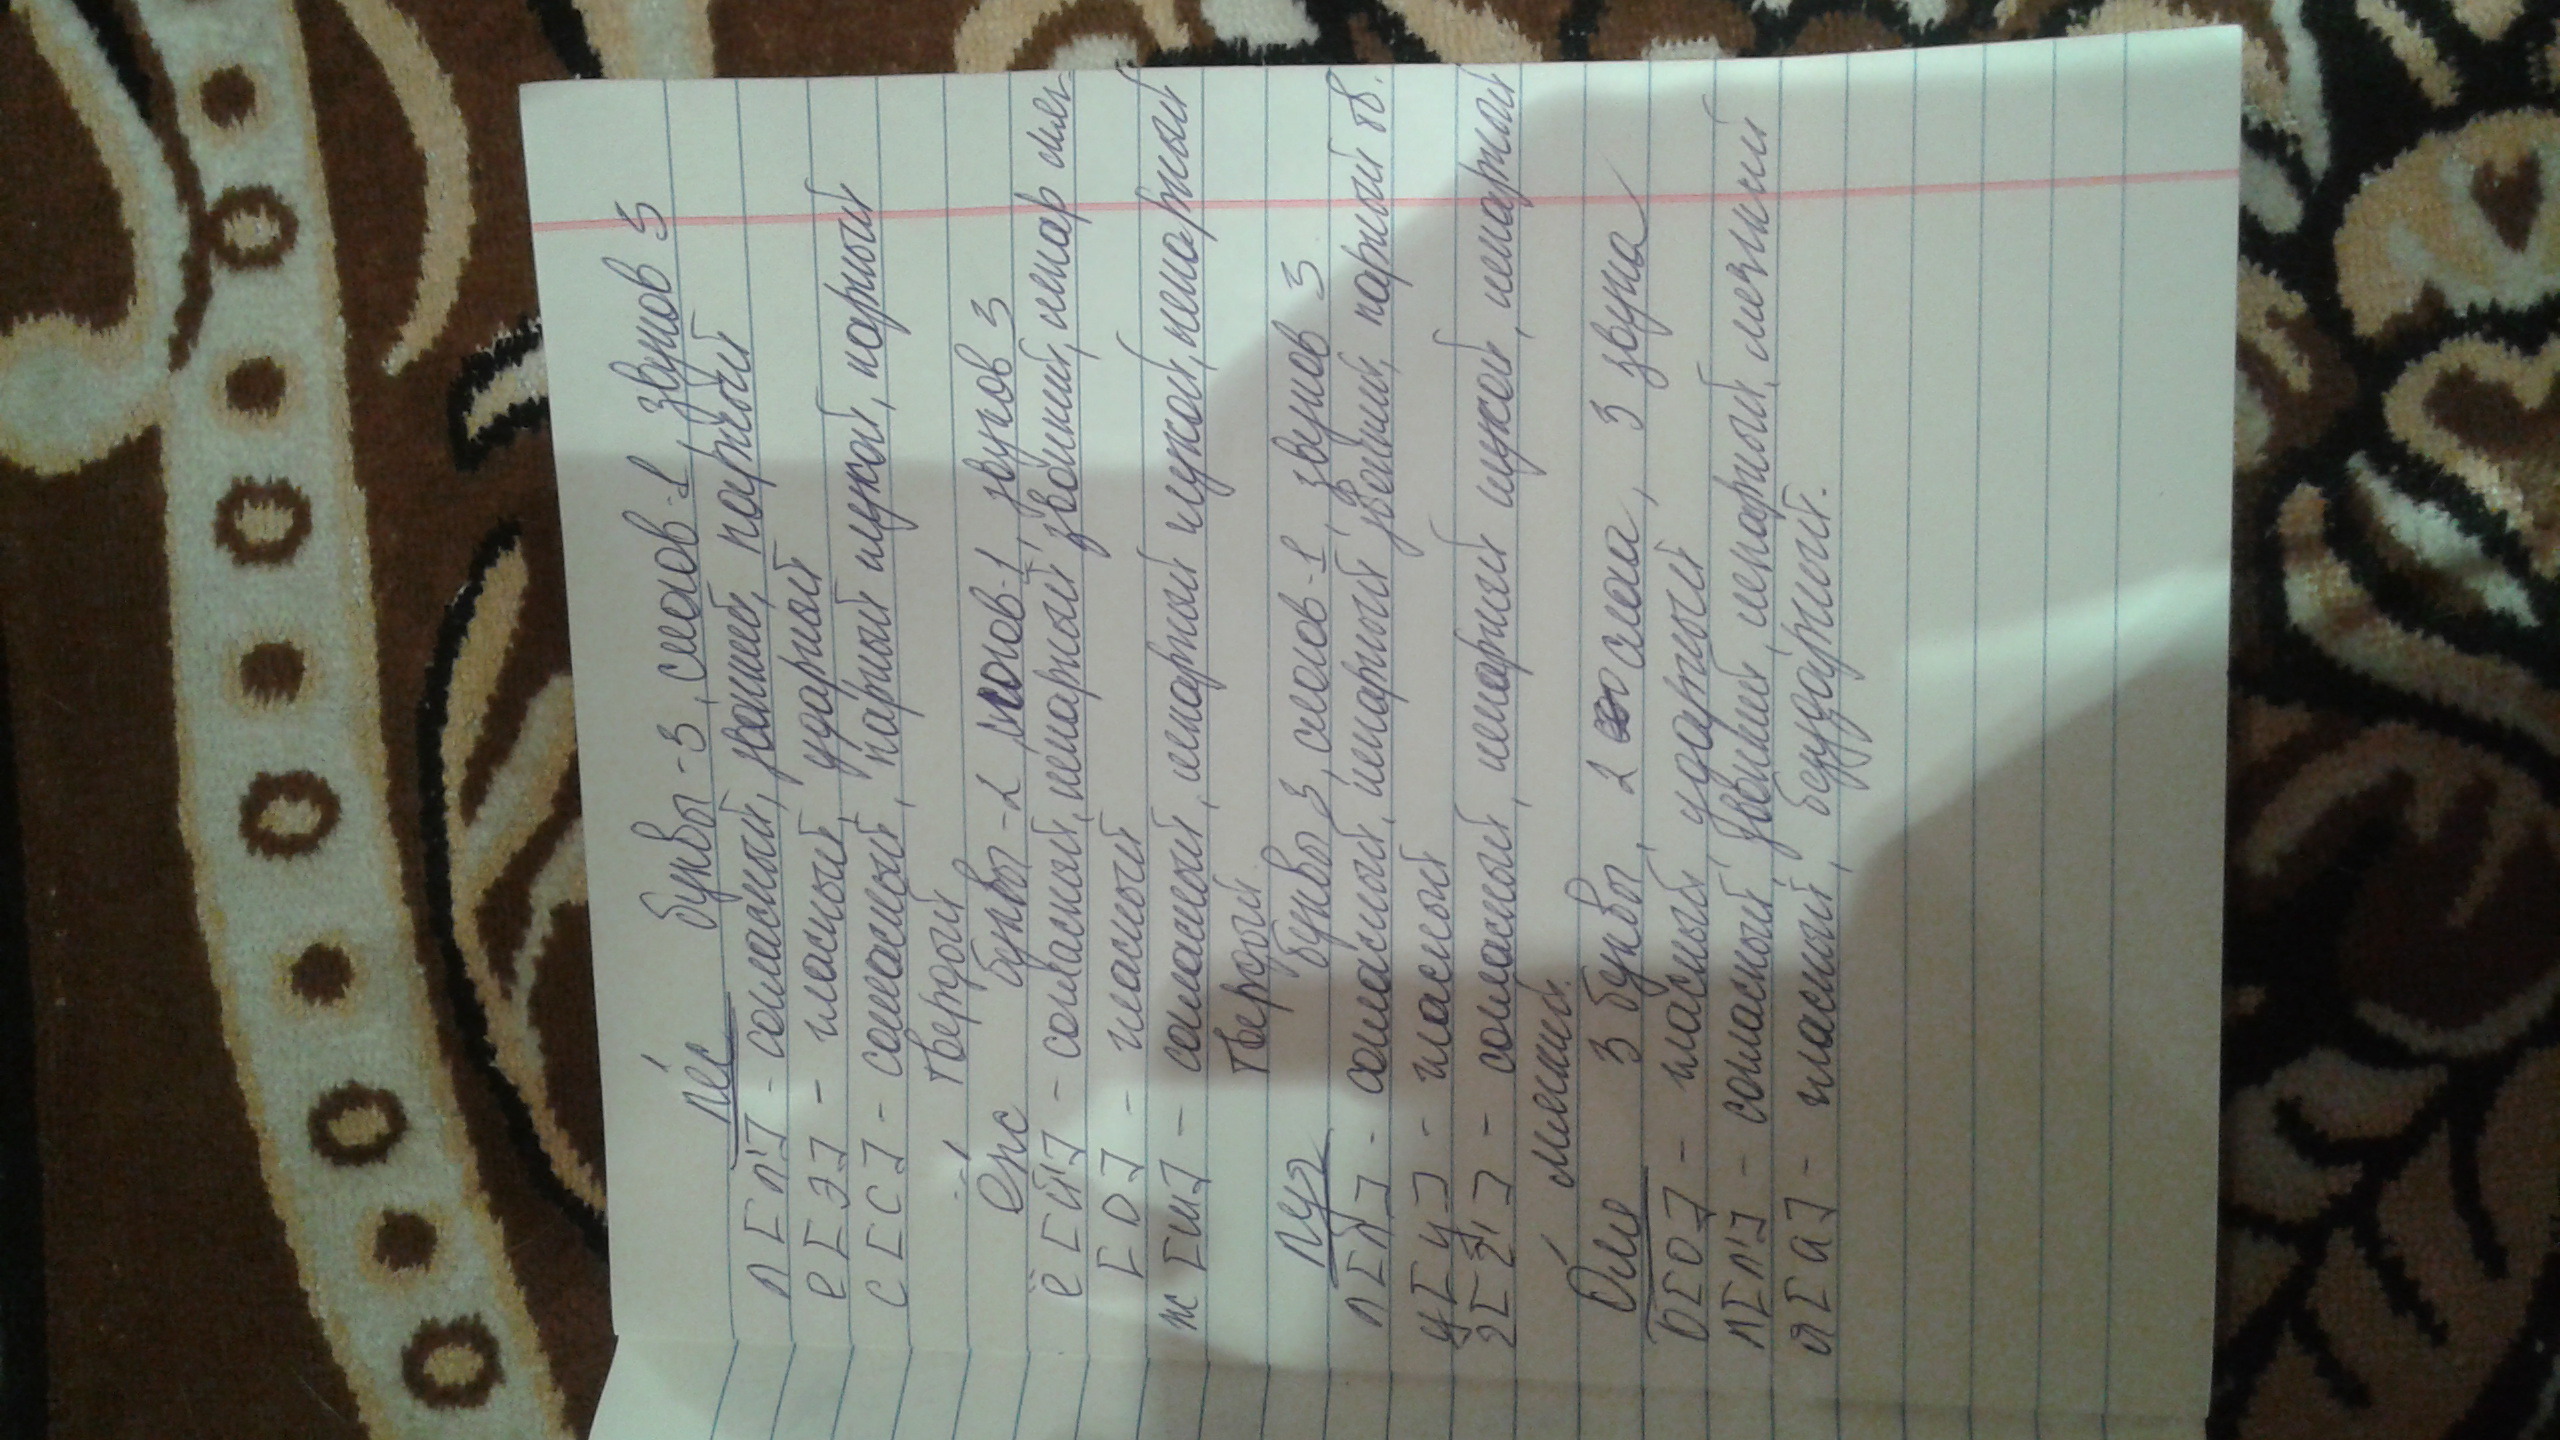 Лес буквы - 3, слогов - 1 звуков 3
л [л'] - согласный, звонкий, парный
е [э] - гласный, ударный
с [с] - согласный, парный глухой, парный
твердый
ёж буквы - 2 слогов - 1, звуков 3
ё [й'] - согласный, непарный, звонкий, непар мяг
[о] - гласный
ж [ш] - согласный, непарный глухой, непарный
твердый.
луг буквы 3 слогов - 1, звуков 3.
л [л] - согласный, непарный звонкий, парный тв.
у [у] - гласный
г [г'] - согласный, непарный глухой, непарный
мягкий.
Оля 3 буквы, 2 слога, 3 звука
о [о] - гласный, ударный
л [л'] - согласный, звонкий, непарный, мягкий
я [а] - гласный, безударный.